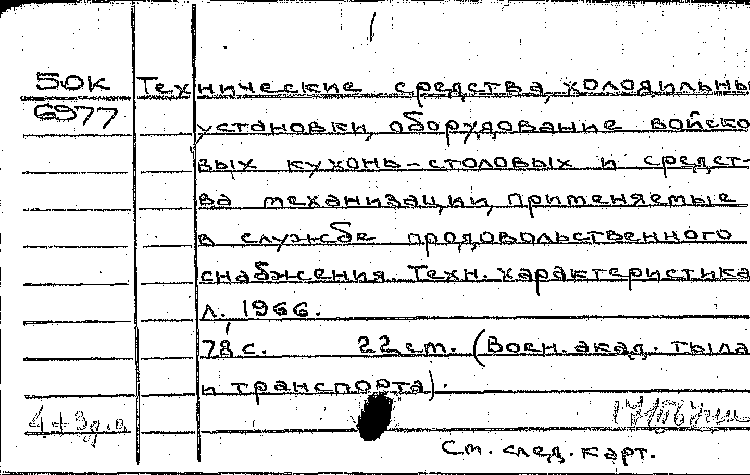 50К Технические средства, холодильны
6977 установки, оборудование войско
вых кухонь-столовых и средст-
ва механизации, применяемые
в службе продовольственного
снабжения. Техн. характеристика
Л. 1966.
78 с. 22 см. (Воен. акад. тыла
и транспорта).
4+3д.а
См. след. карт.